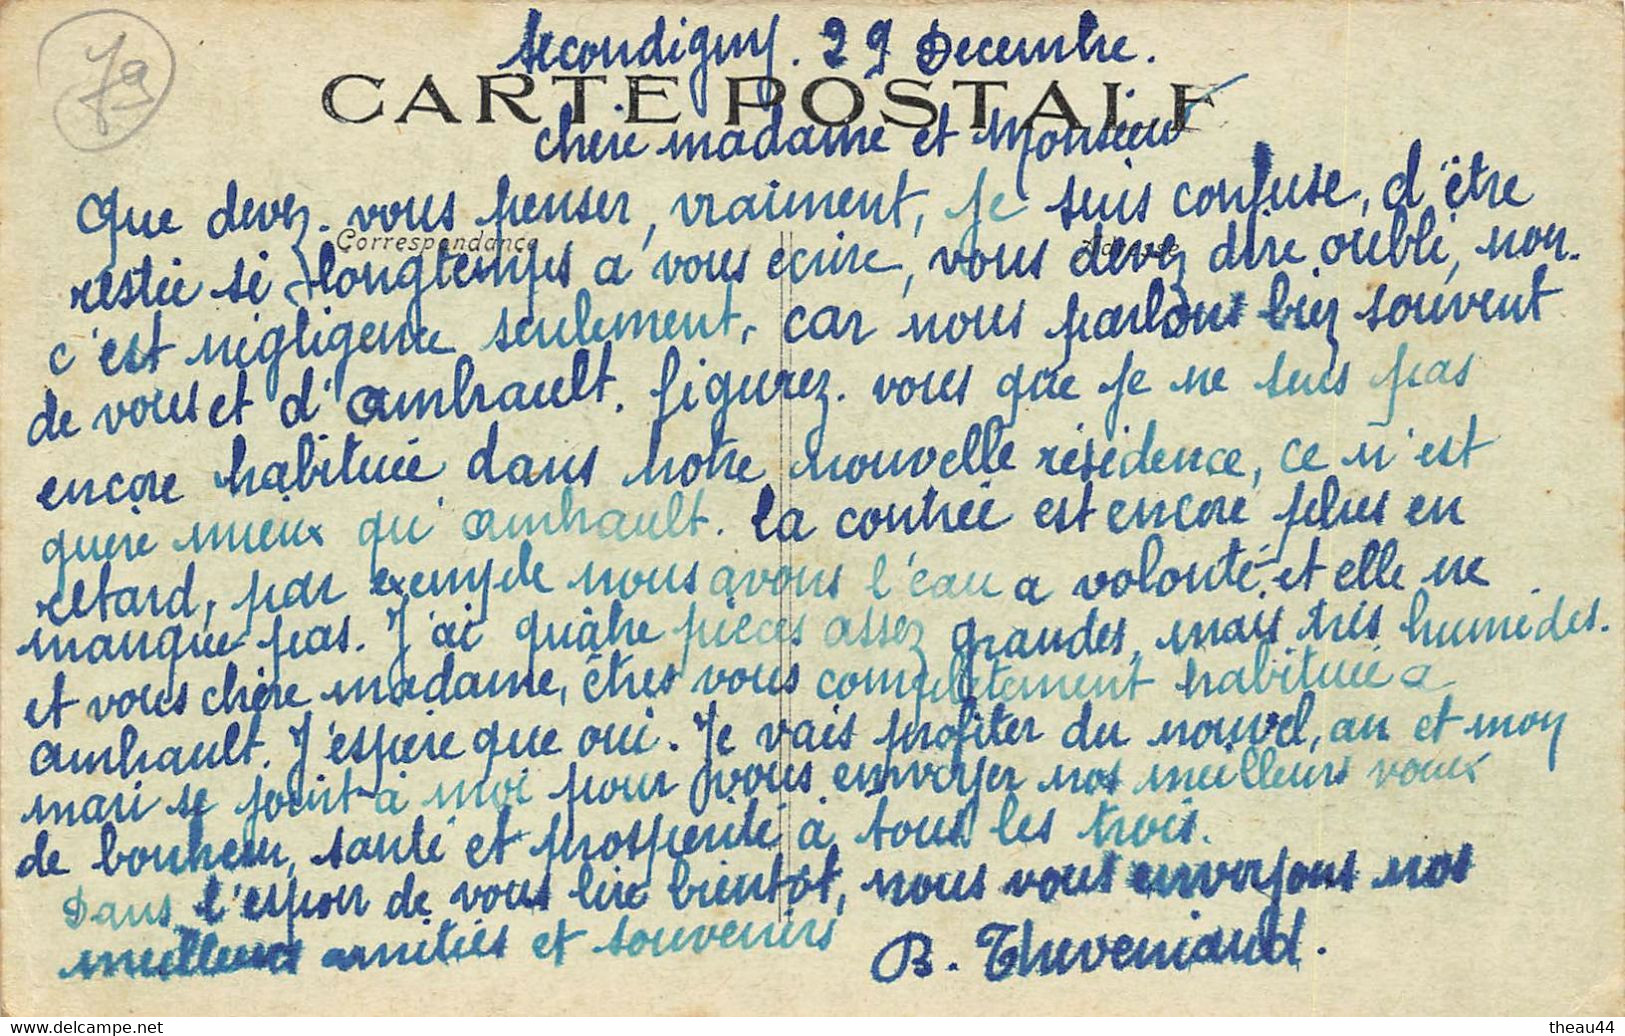 79
Secondigny. 29 Decembre.
CARTE POSTALE
chère madame et Monsieur
Que devez-vous penser, vraiment, je suis confuse, d'être
Correspondance
Adresse
restée si longtemps a vous ecrire, vous devez dire oubli, non.
c'est négligence seulement, car nous parlons bien souvent
de vous et d'ambrault. figurez-vous que je ne suis pas
encore habituée dans notre nouvelle résidence, ce n'est
guère mieux qu'ambrault. la contrée est encore plus en
retard, par exemple nous avons l'eau a volonté et elle ne
manque pas. J'ai quatre pièces assez grandes, mais très humides.
et vous chère madame, êtes vous completement habituée a
ambrault. J'espère que oui. Je vais profiter du nouvel, an et mon
mari se joint à moi pour vous envoyer nos meilleurs voeux
de bonheur, santé et prosperité à tous les trois.
Dans l'espoir de vous lire bientôt, nous vous envoyons nos
meilleurs amitiés et souvenirs
B. Theveniaud.
www.delcampe.net
theau44